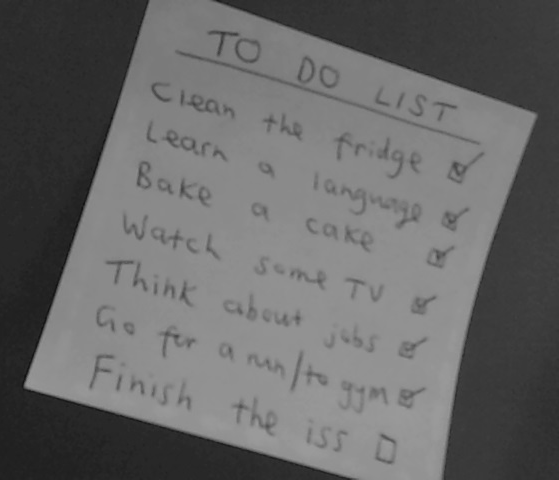 TO DO LIST
Clean the fridge ☑
Learn a language ☑
Bake a cake ☑
Watch some TV ☑
Think about jobs ☑
Go for a run/to gym ☑
Finish the iss ☐